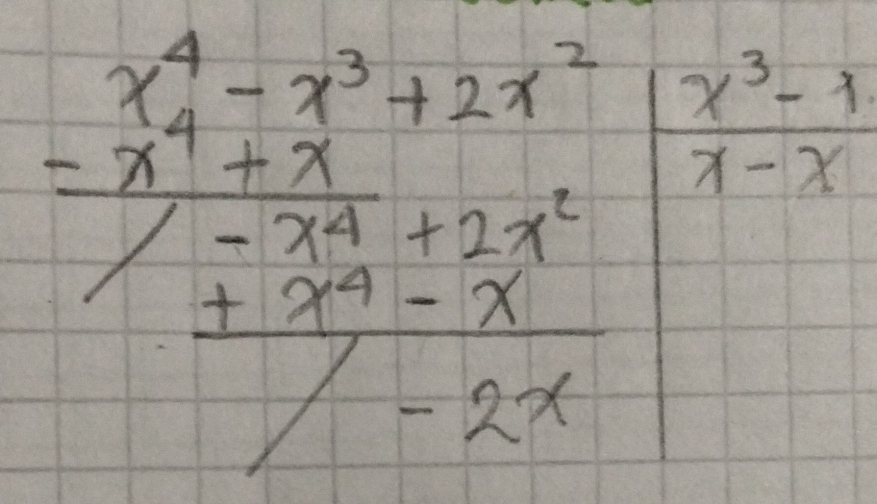 x⁴ - x³ + 2x² | x³ - 1
- x⁴ + x | x - x
/ - x⁴ + 2x²
+ x⁴ - x
/ - 2x